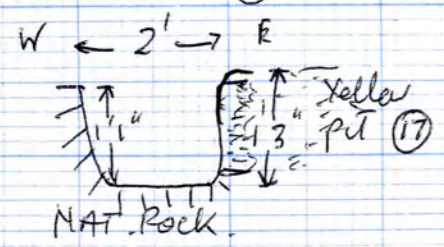 W ← 2' → E
1'1" 1'3" Yellow
Pit 17
NAT. ROCK.